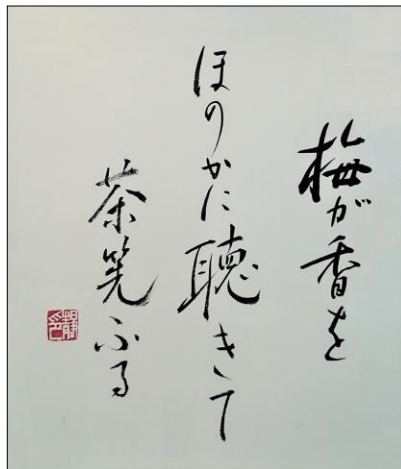 梅が香を
ほのかに聴きて
茶筅ふる